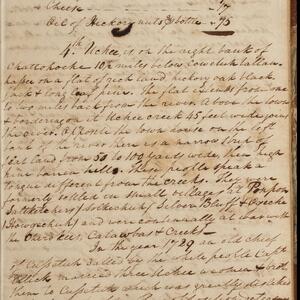 & Cheese
Oil of Hickory nuts & bottle .75
4th Uchee, is on the right bank of
Chattohoche 10½ miles below Cowetuh tallau-
hassee on a flat of rich land hickory oak black
Jack & long leaf pine. The flat extends from one
to two miles back from the river. Above the town
& bordering on it Uchee creek 45 feet wide joins
the river. Opposite the town house on the left
bank of the river there is a narrow strip of
flat land from 50 to 100 yards wide, then high
pine barren hills. These people speak a
tongue different from the Creeks. They were
formerly settled in small villages at Ponpon
Silver Bluff & Ogeche
and were continually at war with
the Cherokees, Catawbas & Creeks.
In the year 1729 an old chief
of Cussetuh called by the white people Capt.
Ellick married three Uchee women & brot
them to Cussetuh which was greatly disliked